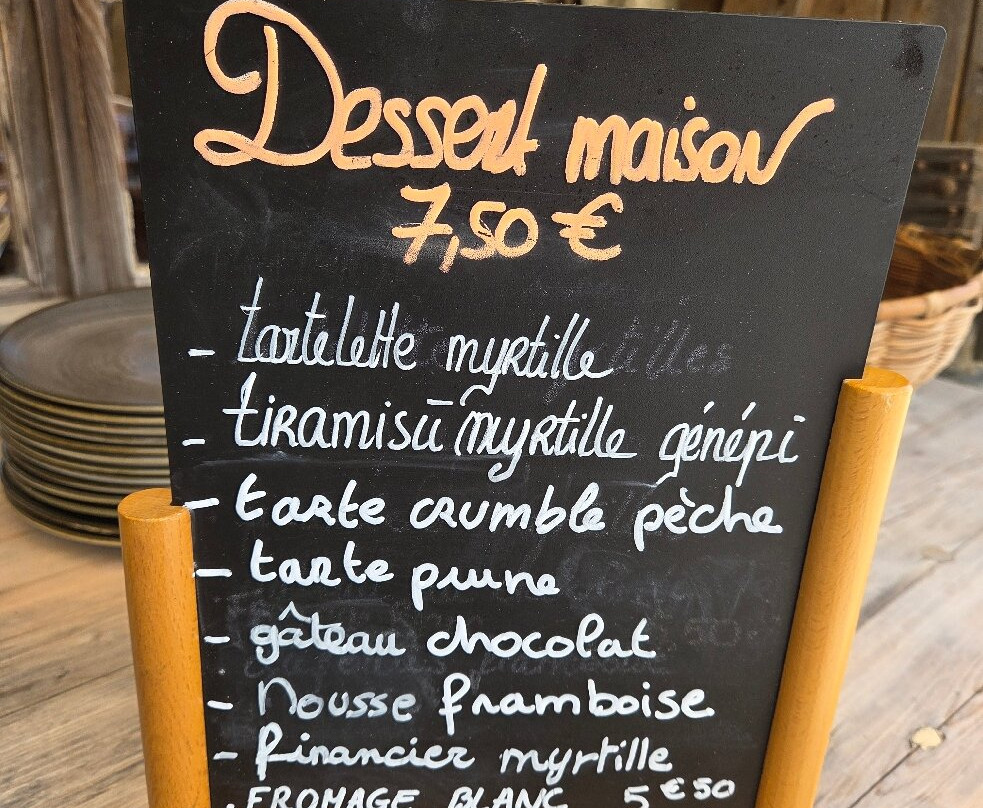 Dessert maison
7,50 €
- tartelette myrtille
- tiramisū myrtille génépi
- tarte crumble pèche
- tarte prune
- gâteau chocolat
- Mousse framboise
- financier myrtille
- FROMAGE BLANC 5€50